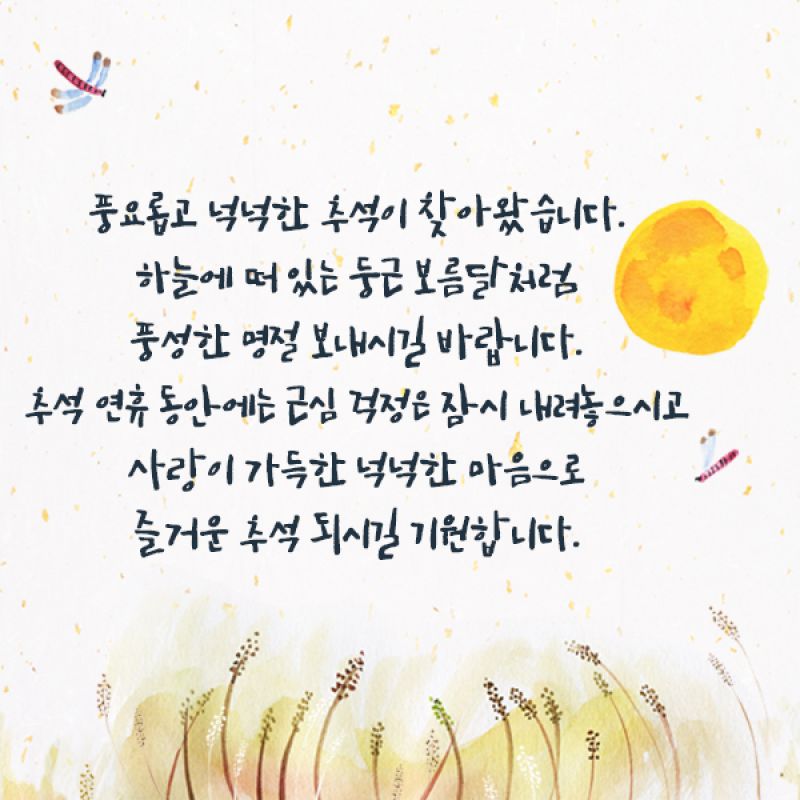 풍요롭고 넉넉한 추석이 찾아왔습니다.
하늘에 떠 있는 둥근 보름달처럼
풍성한 명절 보내시길 바랍니다.
추석 연휴 동안에는 근심 걱정은 잠시 내려놓으시고
사랑이 가득한 넉넉한 마음으로
즐거운 추석 되시길 기원합니다.